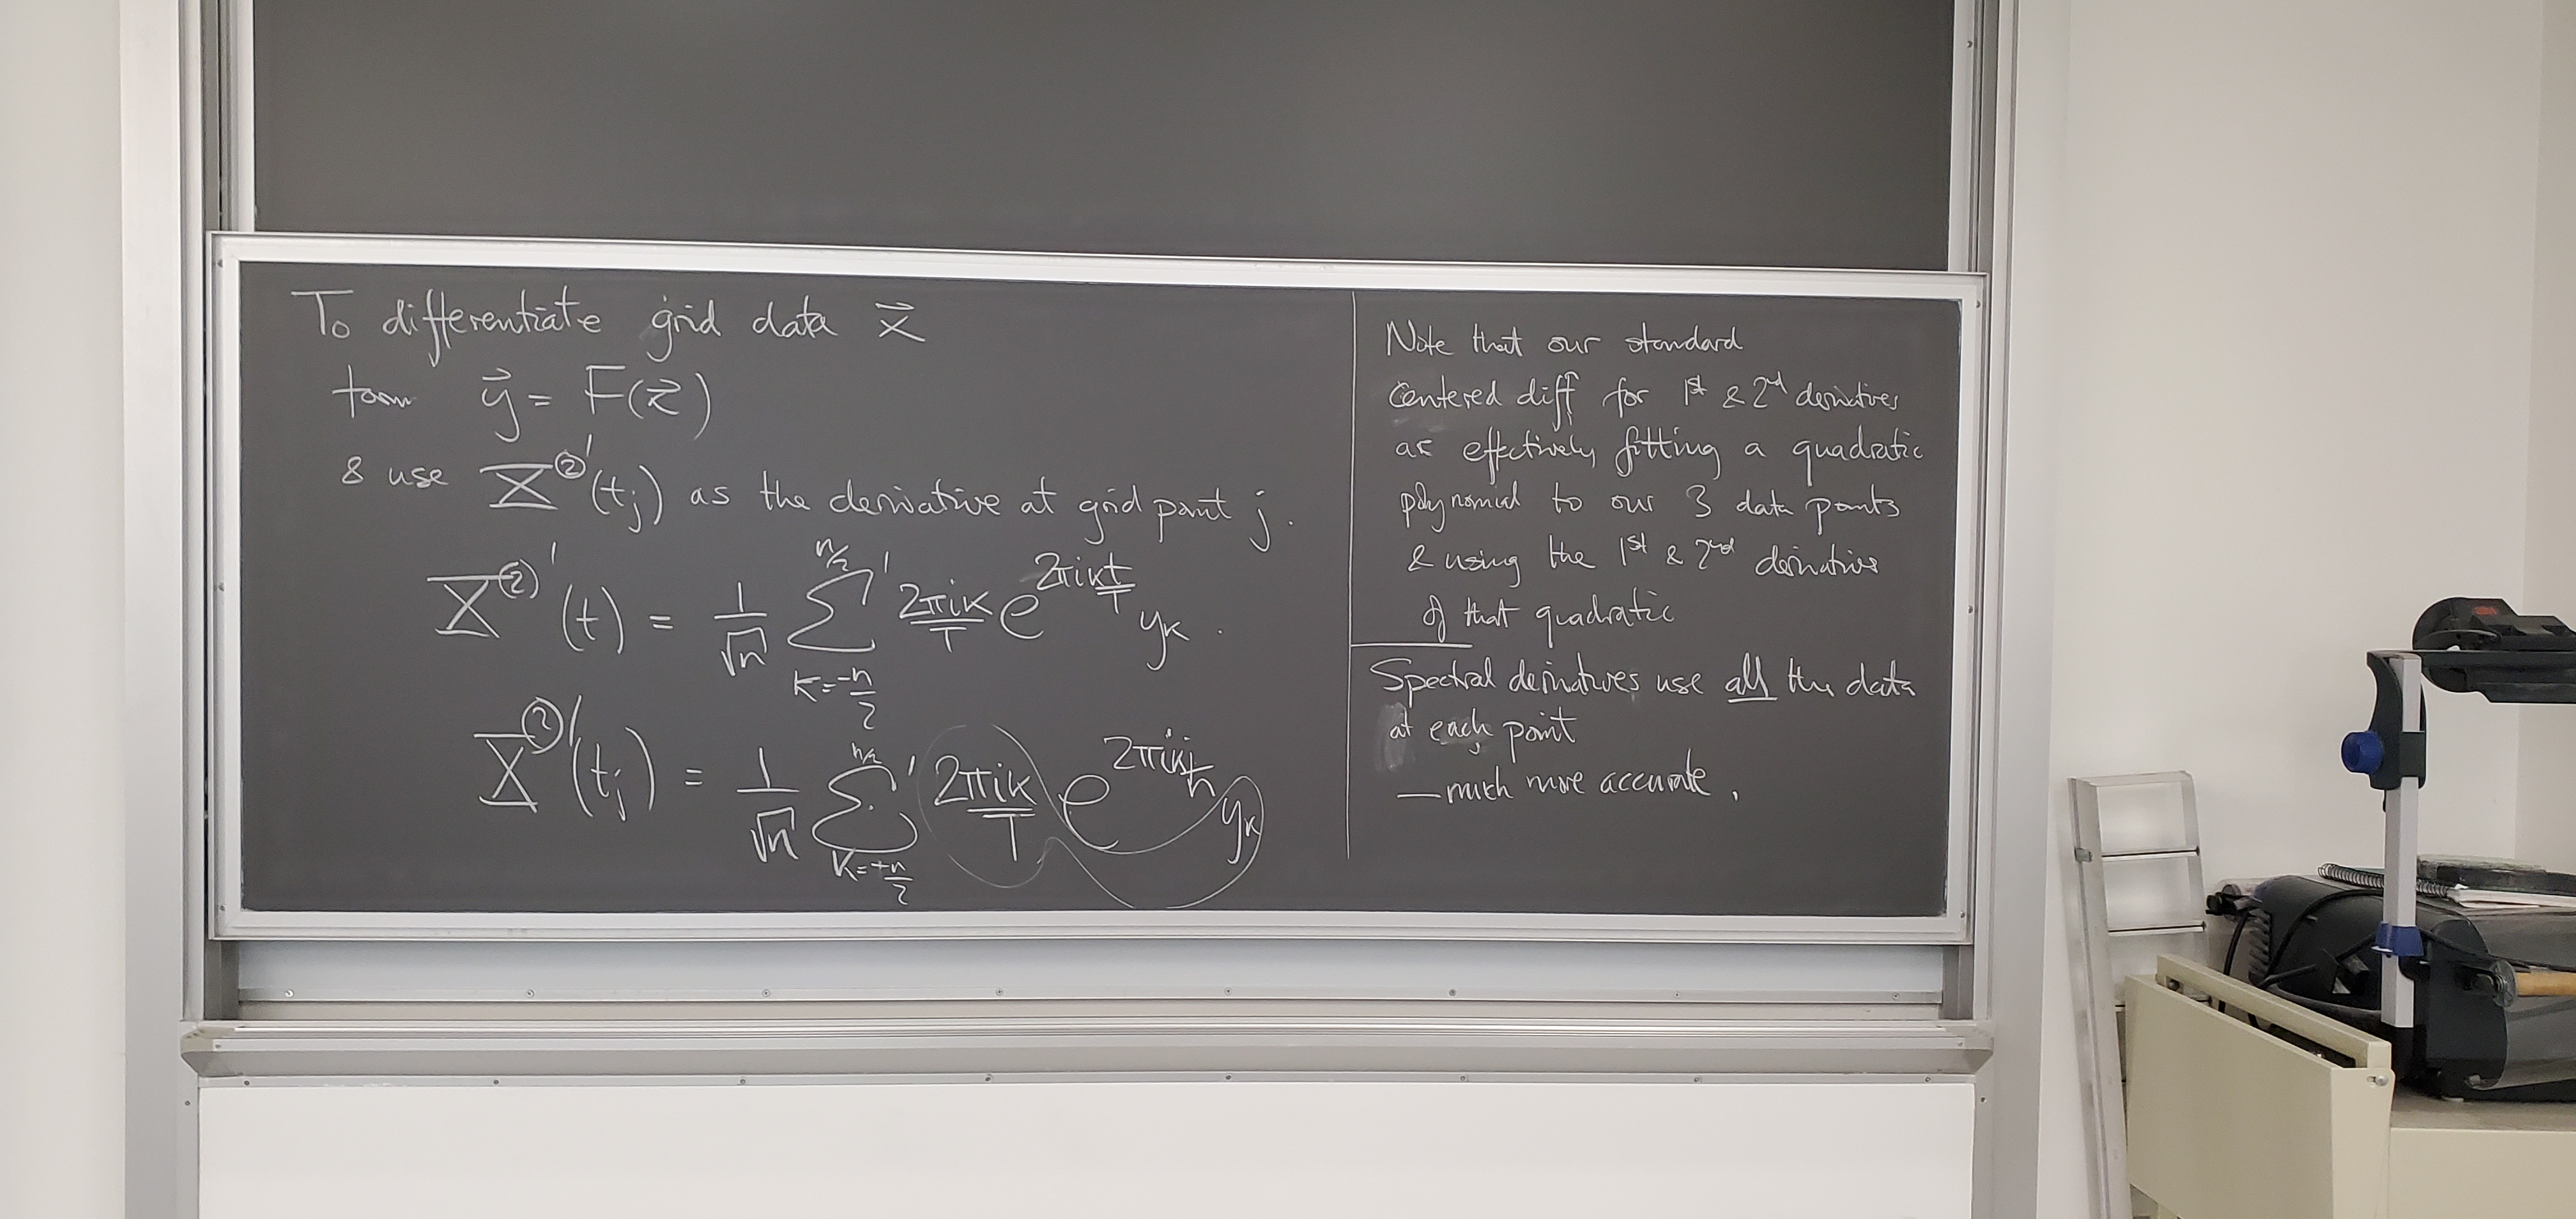 To differentiate grid data x⃗
form y⃗ = F(x⃗)
& use X^②'(t_j) as the derivative at grid point j.
X^②'(t) = 1/√n Σ'_{k=-n/2}^{n/2} 2πik/T e^{2πikt/T} y_k .
X^②'(t_j) = 1/√n Σ'_{k=-n/2}^{n/2} 2πik/T e^{2πikj/n} y_k
Note that our standard
centered diff for 1st & 2nd derivatives
are effectively fitting a quadratic
polynomial to our 3 data points
& using the 1st & 2nd derivatives
of that quadratic
Spectral derivatives use all the data
at each point
— much more accurate .